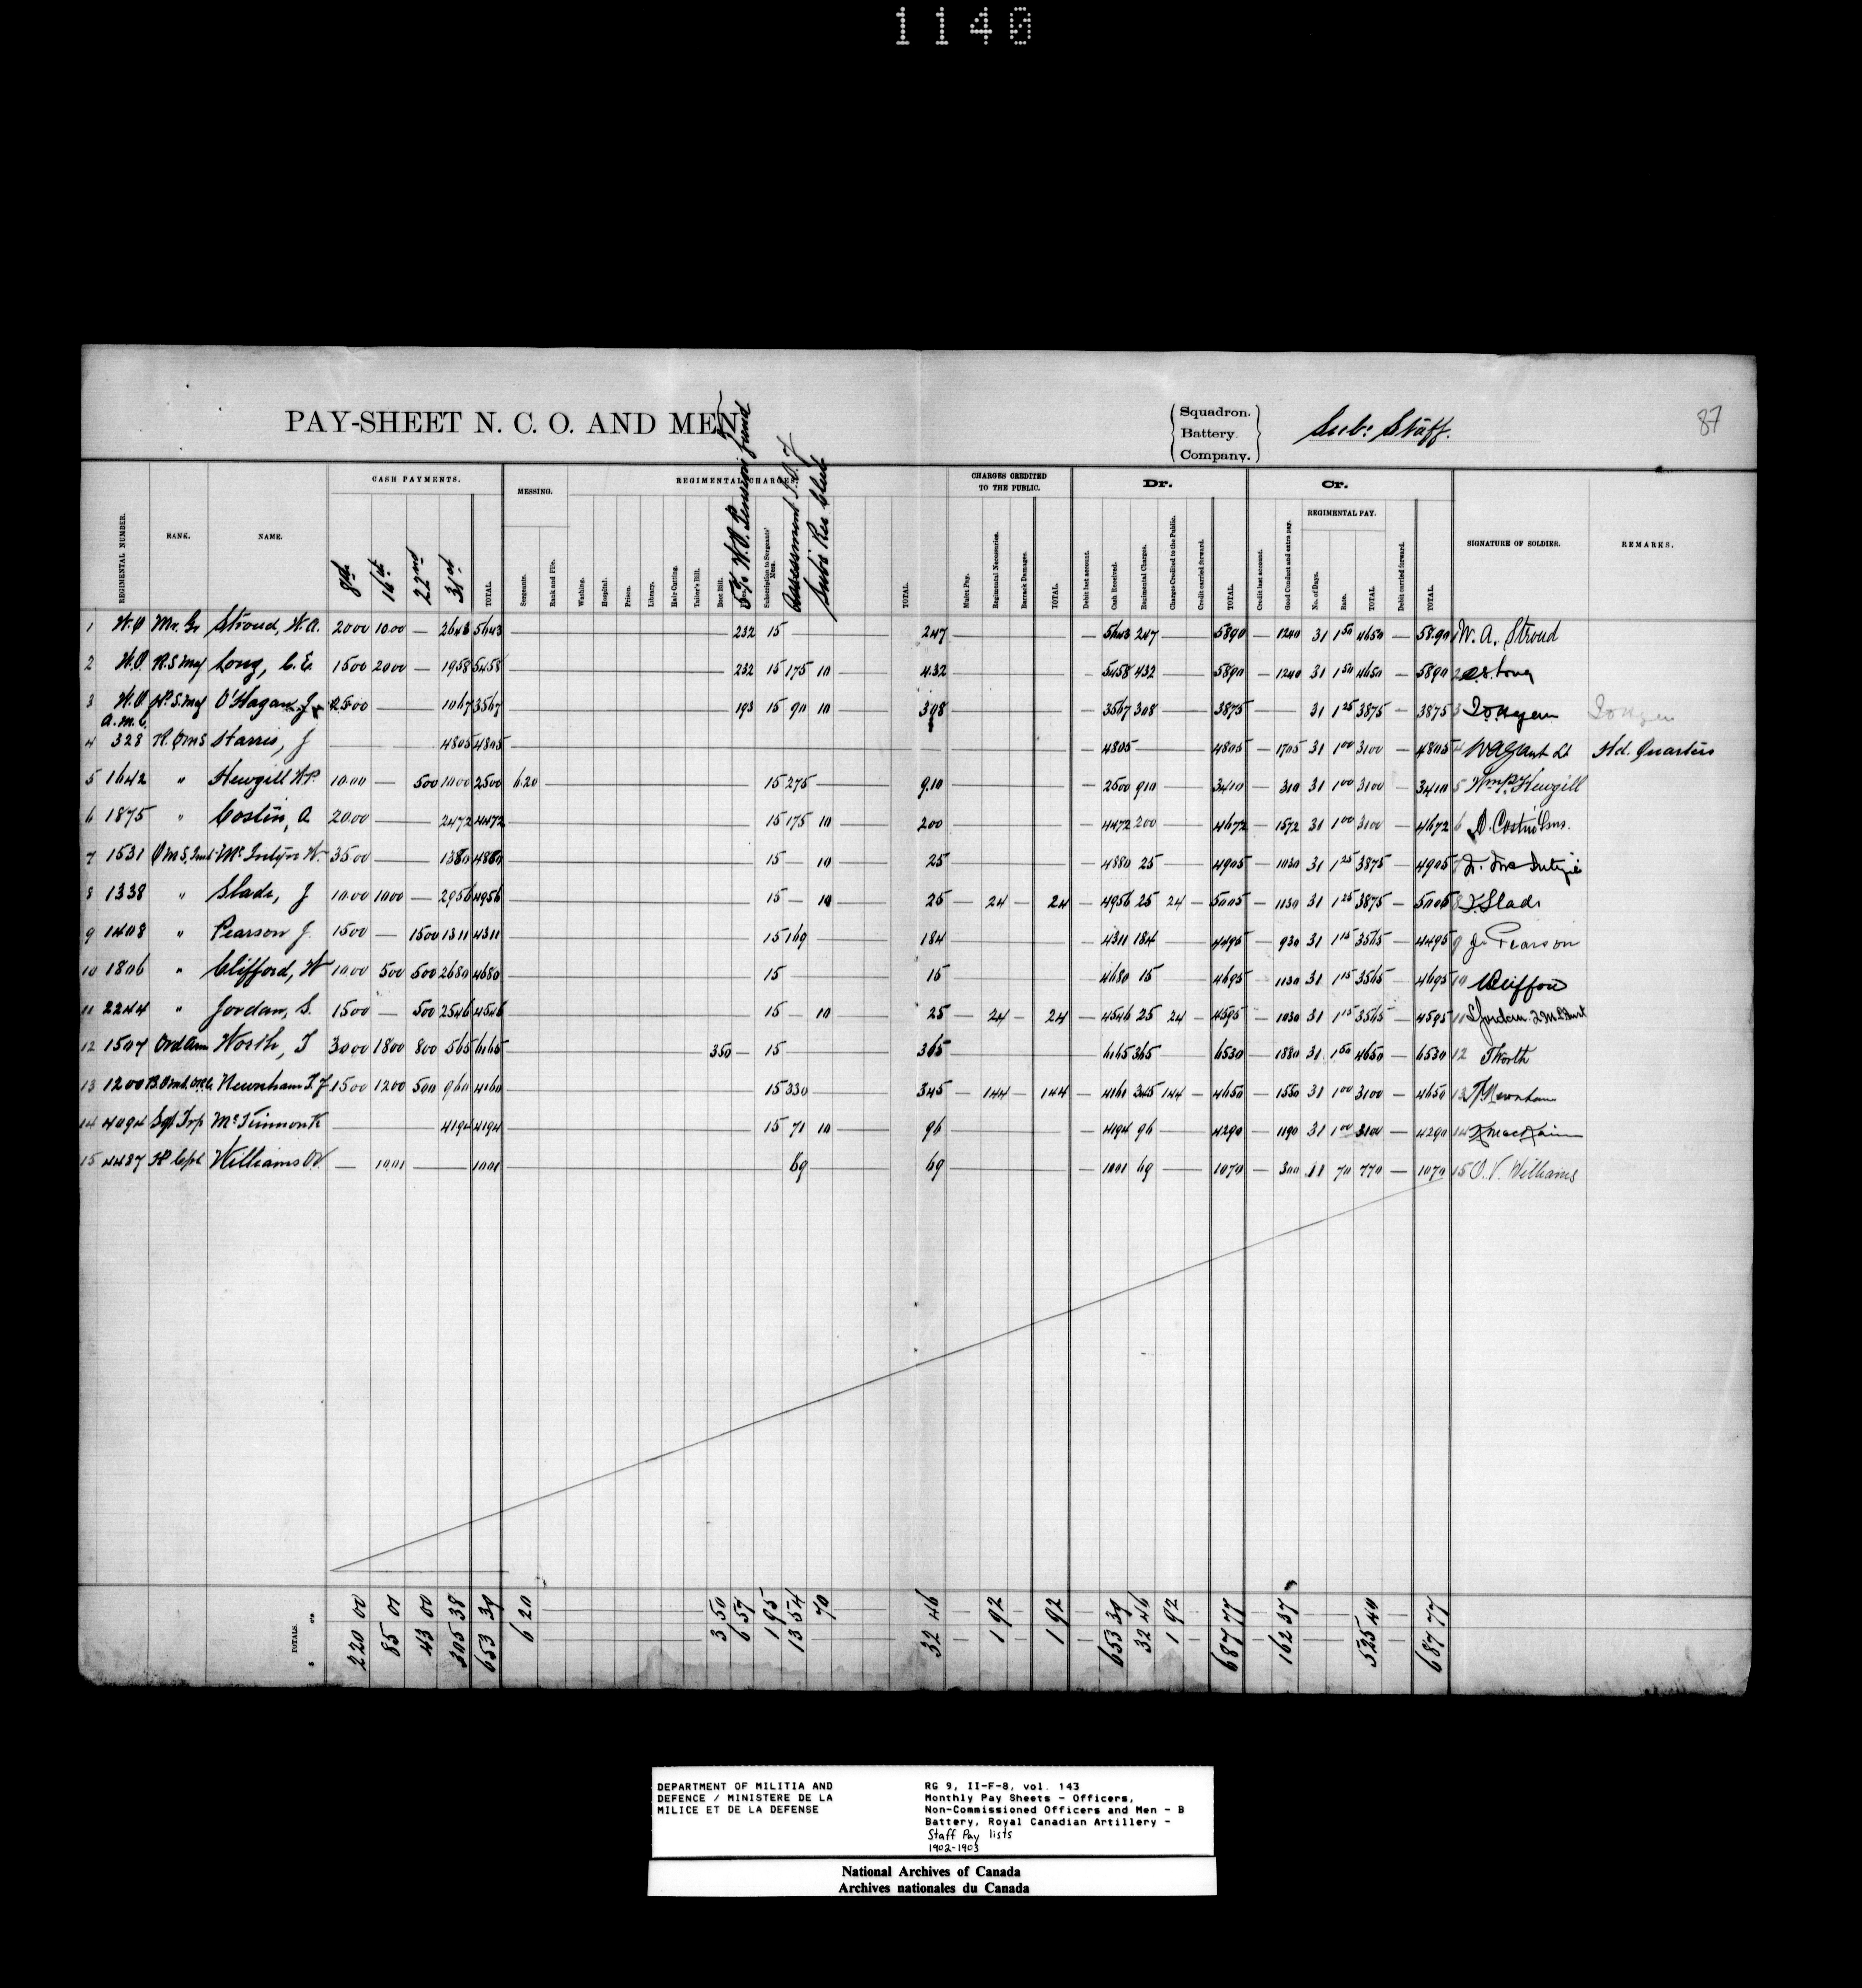 1140
PAY-SHEET N. C. O. AND MEN.
Squadron.
Battery.
Company.
Sub: Staff.
87
REGIMENTAL NUMBER. RANK. NAME. CASH PAYMENTS. 8th 16th 22nd 31st TOTAL. MESSING. Sergeants. Rank and File. REGIMENTAL CHARGES. Washing. Hospital. Prison. Library. Hair-Cutting. Tailor's Bill. Boot Bill. 5% W.O. Pension Fund Subscription to Sergeants' Mess. Assessment Subs Rec Club TOTAL. CHARGES CREDITED TO THE PUBLIC. Mulct Pay. Regimental Necessaries. Barrack Damages. TOTAL. Dr. Debit last account. Cash Received. Regimental Charges. Charges Credited to the Public. Credit carried forward. TOTAL. Cr. Credit last account. Good Conduct and extra pay. REGIMENTAL PAY. No. of Days. Rate. TOTAL Debit carried forward. TOTAL. SIGNATURE OF SOLDIER. REMARKS.
1 W.O Mr. Gr Stroud, W.A. 2000 1000 — 2643 5643 232 15 247 — 5643 247 5890 — 1240 31 1 50 4650 — 5890 1 W. A. Stroud
2 W.O. R.S.Maj Long, C.E. 1500 2000 — 1958 5458 232 15 175 10 432 — 5458 432 5890 — 1240 31 1 50 4650 — 5890 2 C.E. Long
3 W.O S.Maj O'Hagan J 2500 — 1067 3567 193 15 90 10 308 — 3567 308 3875 — 31 1 25 3875 — 3875 3
A.M.C.
4 328 R.QMS Harris, J — 4805 4805 — 4805 4805 — 1705 31 1 00 3100 — 4805 4 Lt Hd. Quarters
5 1642 " Hewgill W.P. 1000 — 500 1000 2500 6.20 15 275 9.10 — 2500 910 3410 — 310 31 1 00 3100 — 3410 5 Wm P. Hewgill
6 1875 " Costin, A 2000 — 2472 4472 15 175 10 200 — 4472 200 4672 — 1572 31 1 00 3100 — 4672 6 A. Costin
7 1531 QMS.Inst McIntyre W. 3500 — 1380 4880 15 — 10 25 — 4880 25 4905 — 1030 31 1 25 3875 — 4905 7 McIntyre
8 1338 " Slade, J 1000 1000 — 2956 4956 15 — 10 25 — 24 — 24 — 4956 25 24 — 5005 — 1130 31 1 25 3875 — 5005 8 J. Slade
9 1408 " Pearson J. 1500 — 1500 1311 4311 15 169 184 — 4311 184 4495 — 930 31 1 15 3565 — 4495 9 J. Pearson
10 1806 " Clifford, W 1000 500 500 2680 4680 15 15 — 4680 15 4695 — 1130 31 1 15 3565 — 4695 10 Clifford
11 2244 " Jordan, S. 1500 — 500 2546 4546 15 — 10 25 — 24 — 24 — 4546 25 24 — 4595 — 1030 31 1 15 3565 — 4595 11 S Jordan
12 1507 Ord Arm Worth, T 3000 1800 800 565 6165 350 — 15 365 — 6165 365 6530 — 1880 31 1 50 4650 — 6530 12 T Worth
13 1200 Newnham T.J 1500 1200 500 960 4160 15 330 345 — 144 — 144 — 4160 345 144 — 4650 — 1550 31 1 00 3100 — 4650 13 Newnham
14 4094 Sgt Trp — 4194 4194 15 71 10 96 — 4194 96 4290 — 1190 31 1 00 3100 — 4290 14
15 4487 Williams O.V — 1001 — 1001 69 69 — 1001 69 1070 — 300 11 70 770 — 1070 15 O. V. Williams
TOTALS. 220 00 85 01 43 00 305 38 653 39 6 20 3 50 6 57 1 95 13 54 70 32 46 — 1 92 — 1 92 — 653 39 32 46 1 92 — 687 77 — 162 37 — 525 40 — 687 77
DEPARTMENT OF MILITIA AND
DEFENCE / MINISTERE DE LA
MILICE ET DE LA DEFENSE
RG 9, II-F-8, vol. 143
Monthly Pay Sheets - Officers,
Non-Commissioned Officers and Men - B
Battery, Royal Canadian Artillery -
Staff Pay lists
1902-1903
National Archives of Canada
Archives nationales du Canada